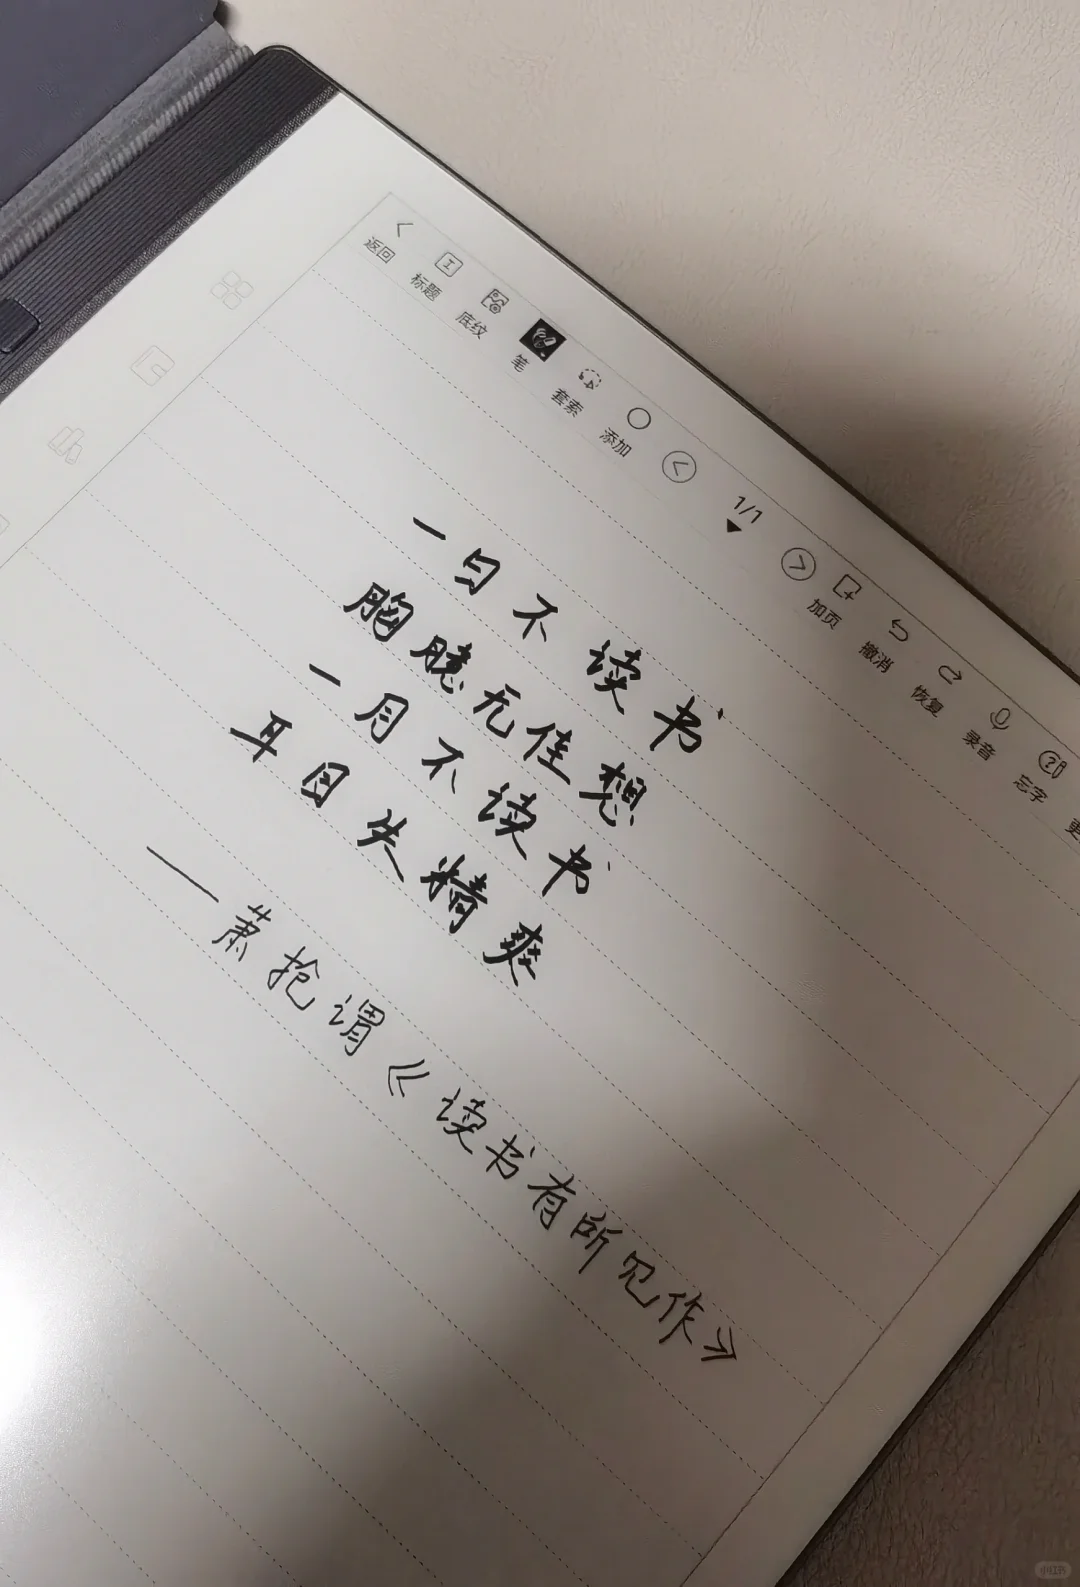 返回 标题 底纹 笔 套索 添加 1/1 加页 撤消 恢复 录音 忘字 更
一日不读书
胸臆无佳想
一月不读书
耳目失精爽
——萧抡谓《读书有所见作》
小红书